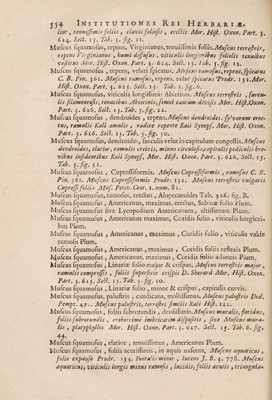 554 INSTITUTIONES REI HERBARIÆ
lior, tenuissimis foliis, clavis foliosis, erectis Mor. Hist. Oxon. Part. 3.
624. Sect. 15. Tab. 5. fig. 11.
Muscus squamosus, repens, Virginianus, tenuissimis foliis. Muscus terrestris,
repens Virginianus, humi diffusus, viticulis longioribus foliolis tenuibus
vestitus Mor. Hist. Oxon. Part. 3. 624. Sect. 15. Tab. 5. fig. 12.
Muscus squamosus, repens, veluti spicatus. Muscus ramosus, repens, spicatus
C. B. Pin. 361. Muscus ramosus, repens, velut spicatus Prodr. 151. Mor.
Hist. Oxon. Part. 3. 625. Sect. 15. Tab. 6. fig. 6.
Muscus squamosus, viticulis longissimis Abietinis. Muscus terrestris, surculis
filamentosis, tenacibus, Abietinis, semel tantum divisis Mor. Hist. Oxon.
Part. 3. 626. Sect. 15. Tab. 5. fig. 21.
Muscus squamosus, dendroides, repens. Muscus dendroides, sylvarum erectus,
ramulis Kali æmulis, radice repente Raii Synops. Mor. Hist. Oxon.
Part. 3. 626. Sect. 15. Tab. 5. fig. 30.
Muscus squamosus, dendroides, surculis veluti in capitulum congestis. Muscus
dendroides, elatior, ramulis crebris, minus surculosis, capitulis pediculis brevibus
insidentibus Raii Synops. Mor. Hist. Oxon. Part. 3. 626. Sect. 15.
Tab. 5. fig. 31.
Muscus squamosus, Cupressiformis. Muscus Cupressiformis, ramosus C. B.
Pin. 361. Muscus Cupressiformis Prodr. 152. Muscus terrestris vulgaris
Cupressi foliis Mus. Petiv. Cent. 1. num. 81.
Muscus squamosus, ramosus, erectus, Alopecuroides Tab. 326. fig. B.
Muscus squamosus, Americanus, maximus, erectus, Sabinæ folio Plum.
Muscus squamosus sive Lycopodium Americanum, altissimum Plum.
Muscus squamosus Americanus maximus, Coridis folio, viticulis longioribus
Plum.
Muscus squamosus, Americanus, maximus, Coridis folio, viticulis valde
ramosis Plum.
Muscus squamosus, Americanus, maximus, Coridis foliis reflexis Plum.
Muscus squamosus, Americanus, maximus, Coridis foliis aduncis Plum.
Muscus squamosus, Linariæ folio major & crispus. Muscus terrestris major,
ramulis compressis, foliis superficie crispis D. Sherard Mor. Hist. Oxon.
Part. 3. 625. Sect. 15. Tab. 5. fig. 10.
Muscus squamosus, Linariæ folio, minor & crispus, capitulis curvis.
Muscus squamosus, palustris, candicans, mollissimus. Muscus palustris Dod.
Pempt. 471. Muscus palustris, terrestri similis Raii Hist. 122.
Muscus squamosus, foliis subrotundis, densissimis. Muscus muralis, floridus,
foliis subrotundis, creberrime imbricatim dispositis, sive Muscus muralis,
platyphyllos Mor. Hist. Oxon. Part. 3. 627. Sect. 15. Tab. 6. fig.
44.
Muscus squamosus, elatior, tenuissimus, Americanus Plum.
Muscus squamosus, foliis acutissimis, in aquis nascens. Muscus aquaticus,
folio expanso Jo. Prodr. 154. Fontalis minor, lucens J. B. 3. 778. Muscus
aquaticus, viticulis longis minus ramosis, lucidis, foliis acutis, triangula-